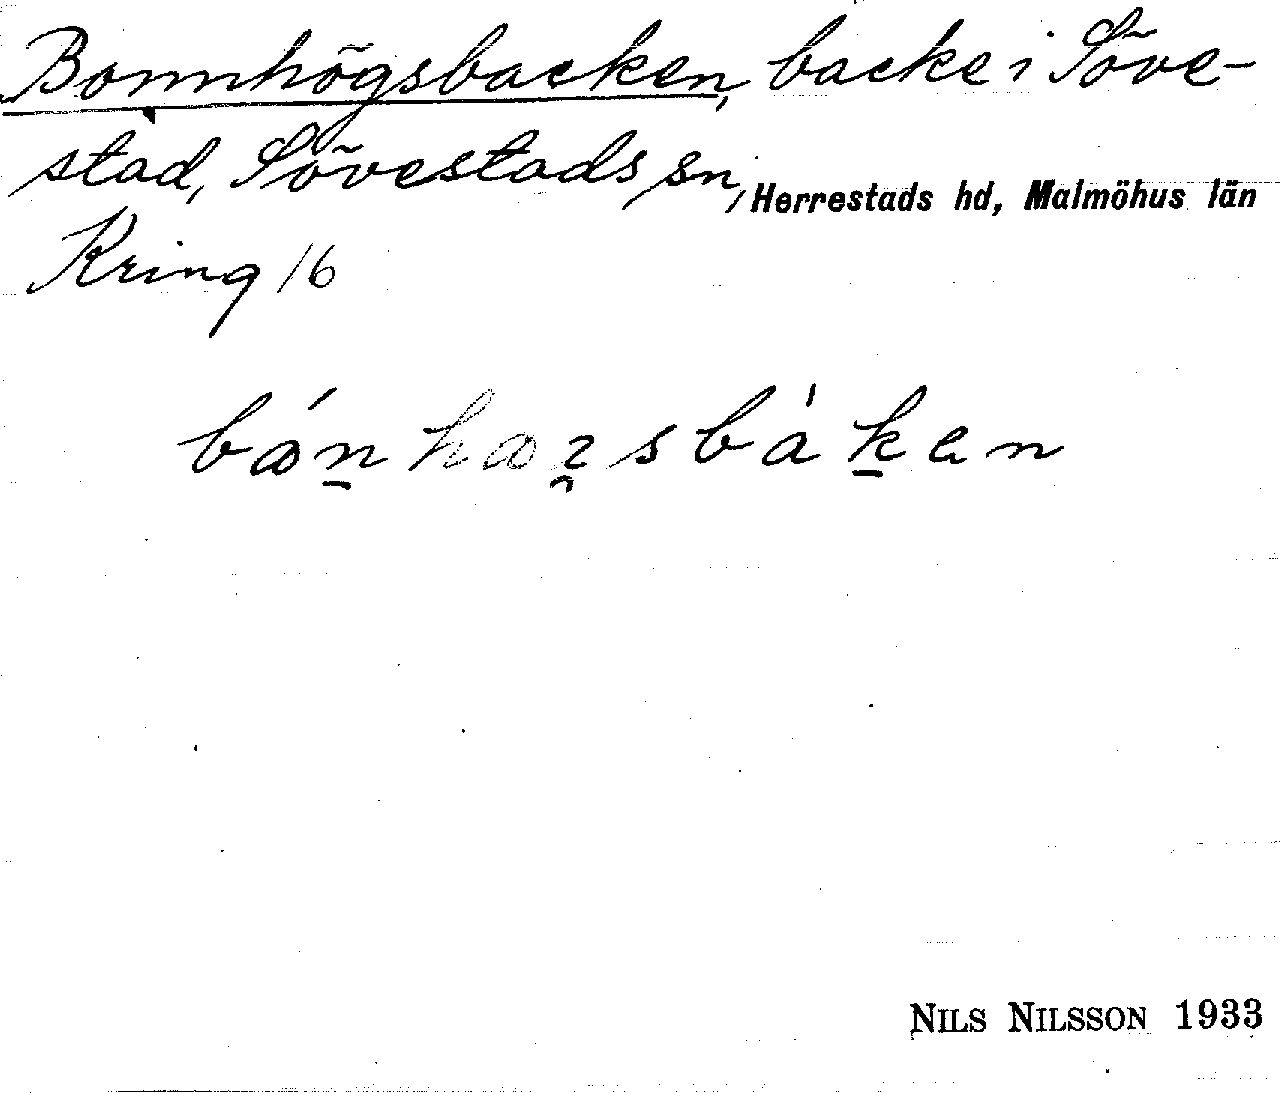 Bonnhögsbacken, backe i Söve-
stad, Sövestads sn, Herrestads hd, Malmöhus län
Kring 16
NILS NILSSON 1933